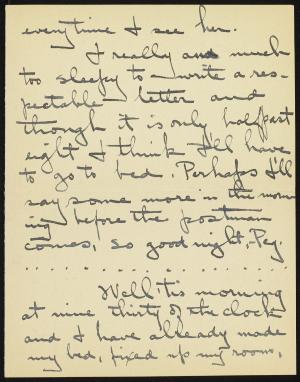 everytime I see her.
I really am much
too sleepy to write a res-
pectable letter and
though it is only half past
eight I think I'll have
to go to bed. Perhaps I'll
say some more in the morn-
ing before the postman
comes, so good night, Peg.
. . . . . . . . . . . . . . . . . . . .
Well 'tis morning
at nine thirty of the clock
and I have already made
my bed, fixed up my room,